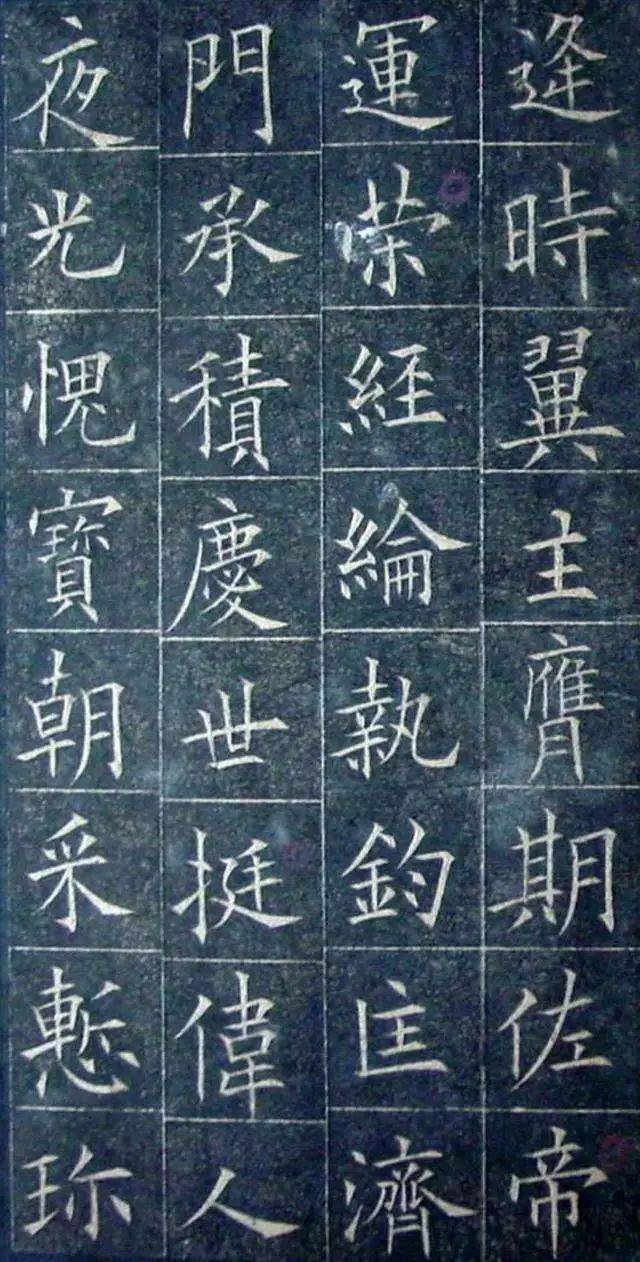 逄時翼主膺期佐帝
運策經綸執鈞匡濟
門承積慶世挺偉人
夜光愧寶朝采慙珎